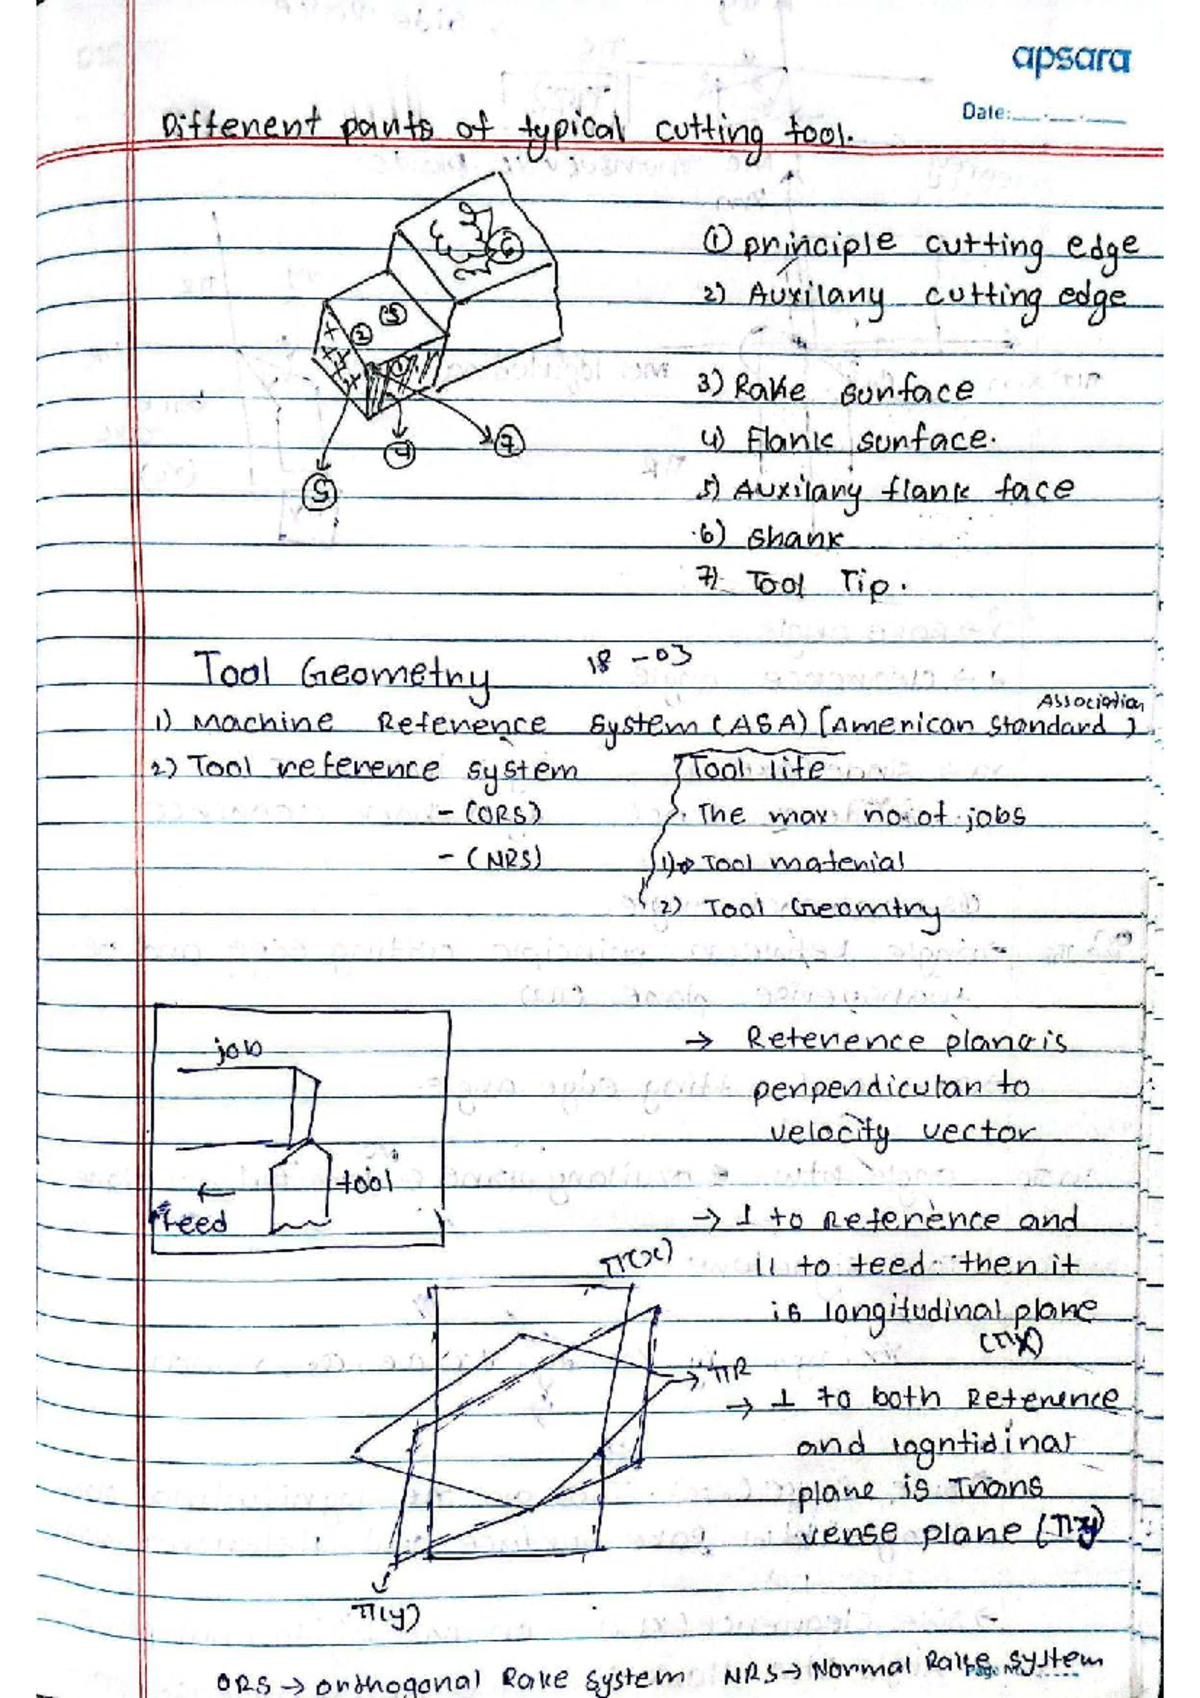 apsara
Date:
Different parts of typical cutting tool.
① principle cutting edge
2) Auxilary cutting edge
3) Rake surface
4) Flank surface.
5) Auxilary flank face
6) Shank
7) Tool Tip.
6
3
2
1
7
4
5
Tool Geometry 18-03
1) Machine Reference System (ASA) [American Standard Association]
2) Tool reference system
- (ORS)
- (NRS)
Tool life
The max no of jobs
1) → Tool material
2) Tool Geomtry
job
tool
← feed
→ Reference plane is
perpendicular to
velocity vector
→ ⊥ to Reference and
|| to feed then it
is longitudinal plane
(πx)
→ ⊥ to both Reference
and logntidinal
plane is Trans
verse plane (πy)
π(x)
→ πR
π(y)
ORS → orthogonal Rake System NRS → Normal Rake System
Page No.